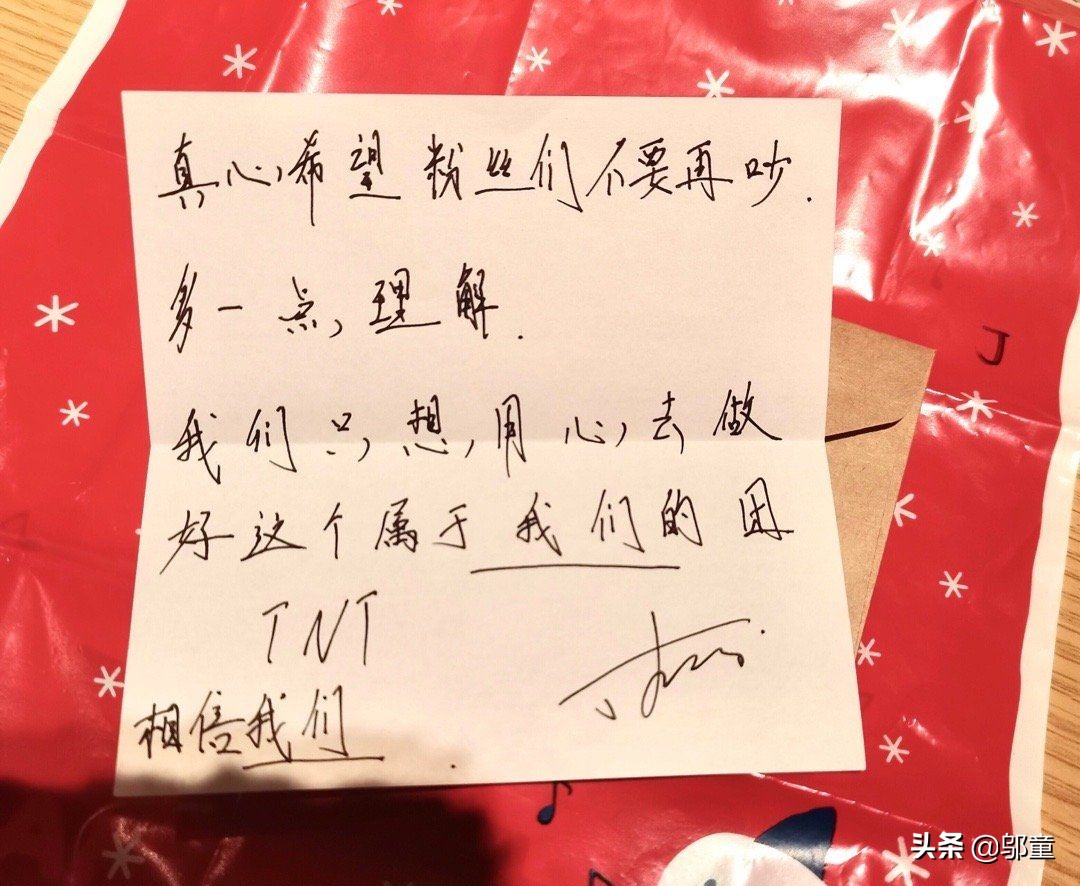 真心希望粉丝们不要再吵.
多一点理解.
我们只想用心去做
好这个属于我们的团
TNT
相信我们.
J
头条 @邬童